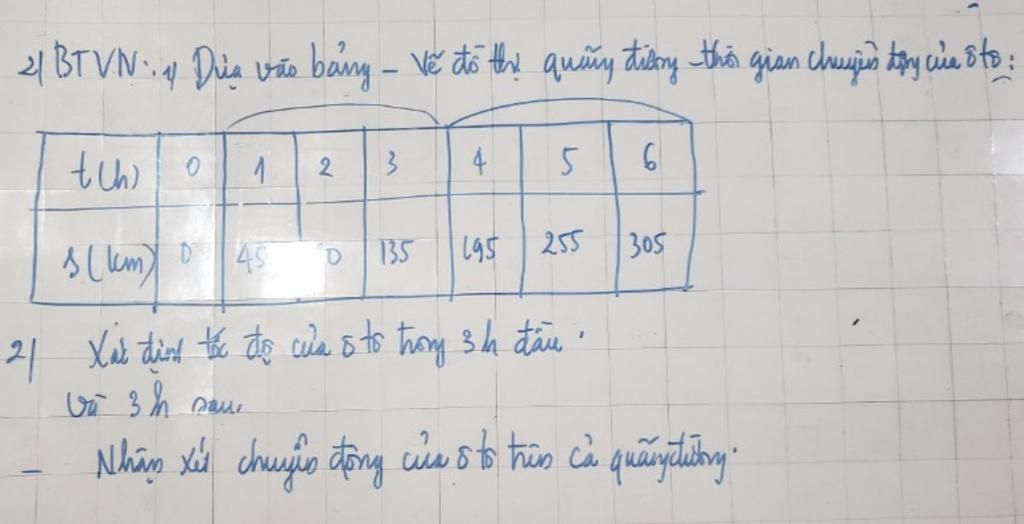 2) BTVN: 1) Dựa vào bảng - Vẽ đồ thị quãng đường - thời gian chuyển động của ô tô:
t(h) 0 1 2 3 4 5 6
s(km) 0 45 0 135 195 255 305
2) Xác định tốc độ của ô tô trong 3h đầu.
và 3h sau.
- Nhận xét chuyển động của ô tô trên cả quãng đường.